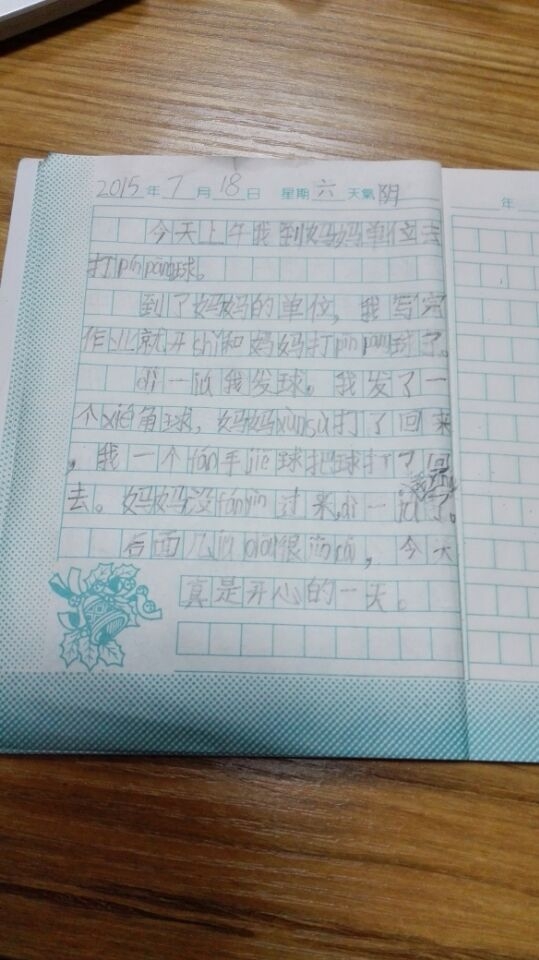 2015年7月18日 星期六 天氣阴 年
今天上午我到妈妈单位去
打pīnpāng球。
到了妈妈的单位，我写完
作业就开shǐ和妈妈打pīnpāng球了。
dì一jú我发球。我发了一
个xié角球，妈妈xùnsù打了回来
，我一个fǎn手jiē球把球打了回
去。妈妈没fǎnyìng过来，dì一jú了。
后面几jú很jīngcǎi，今天
真是开心的一天。